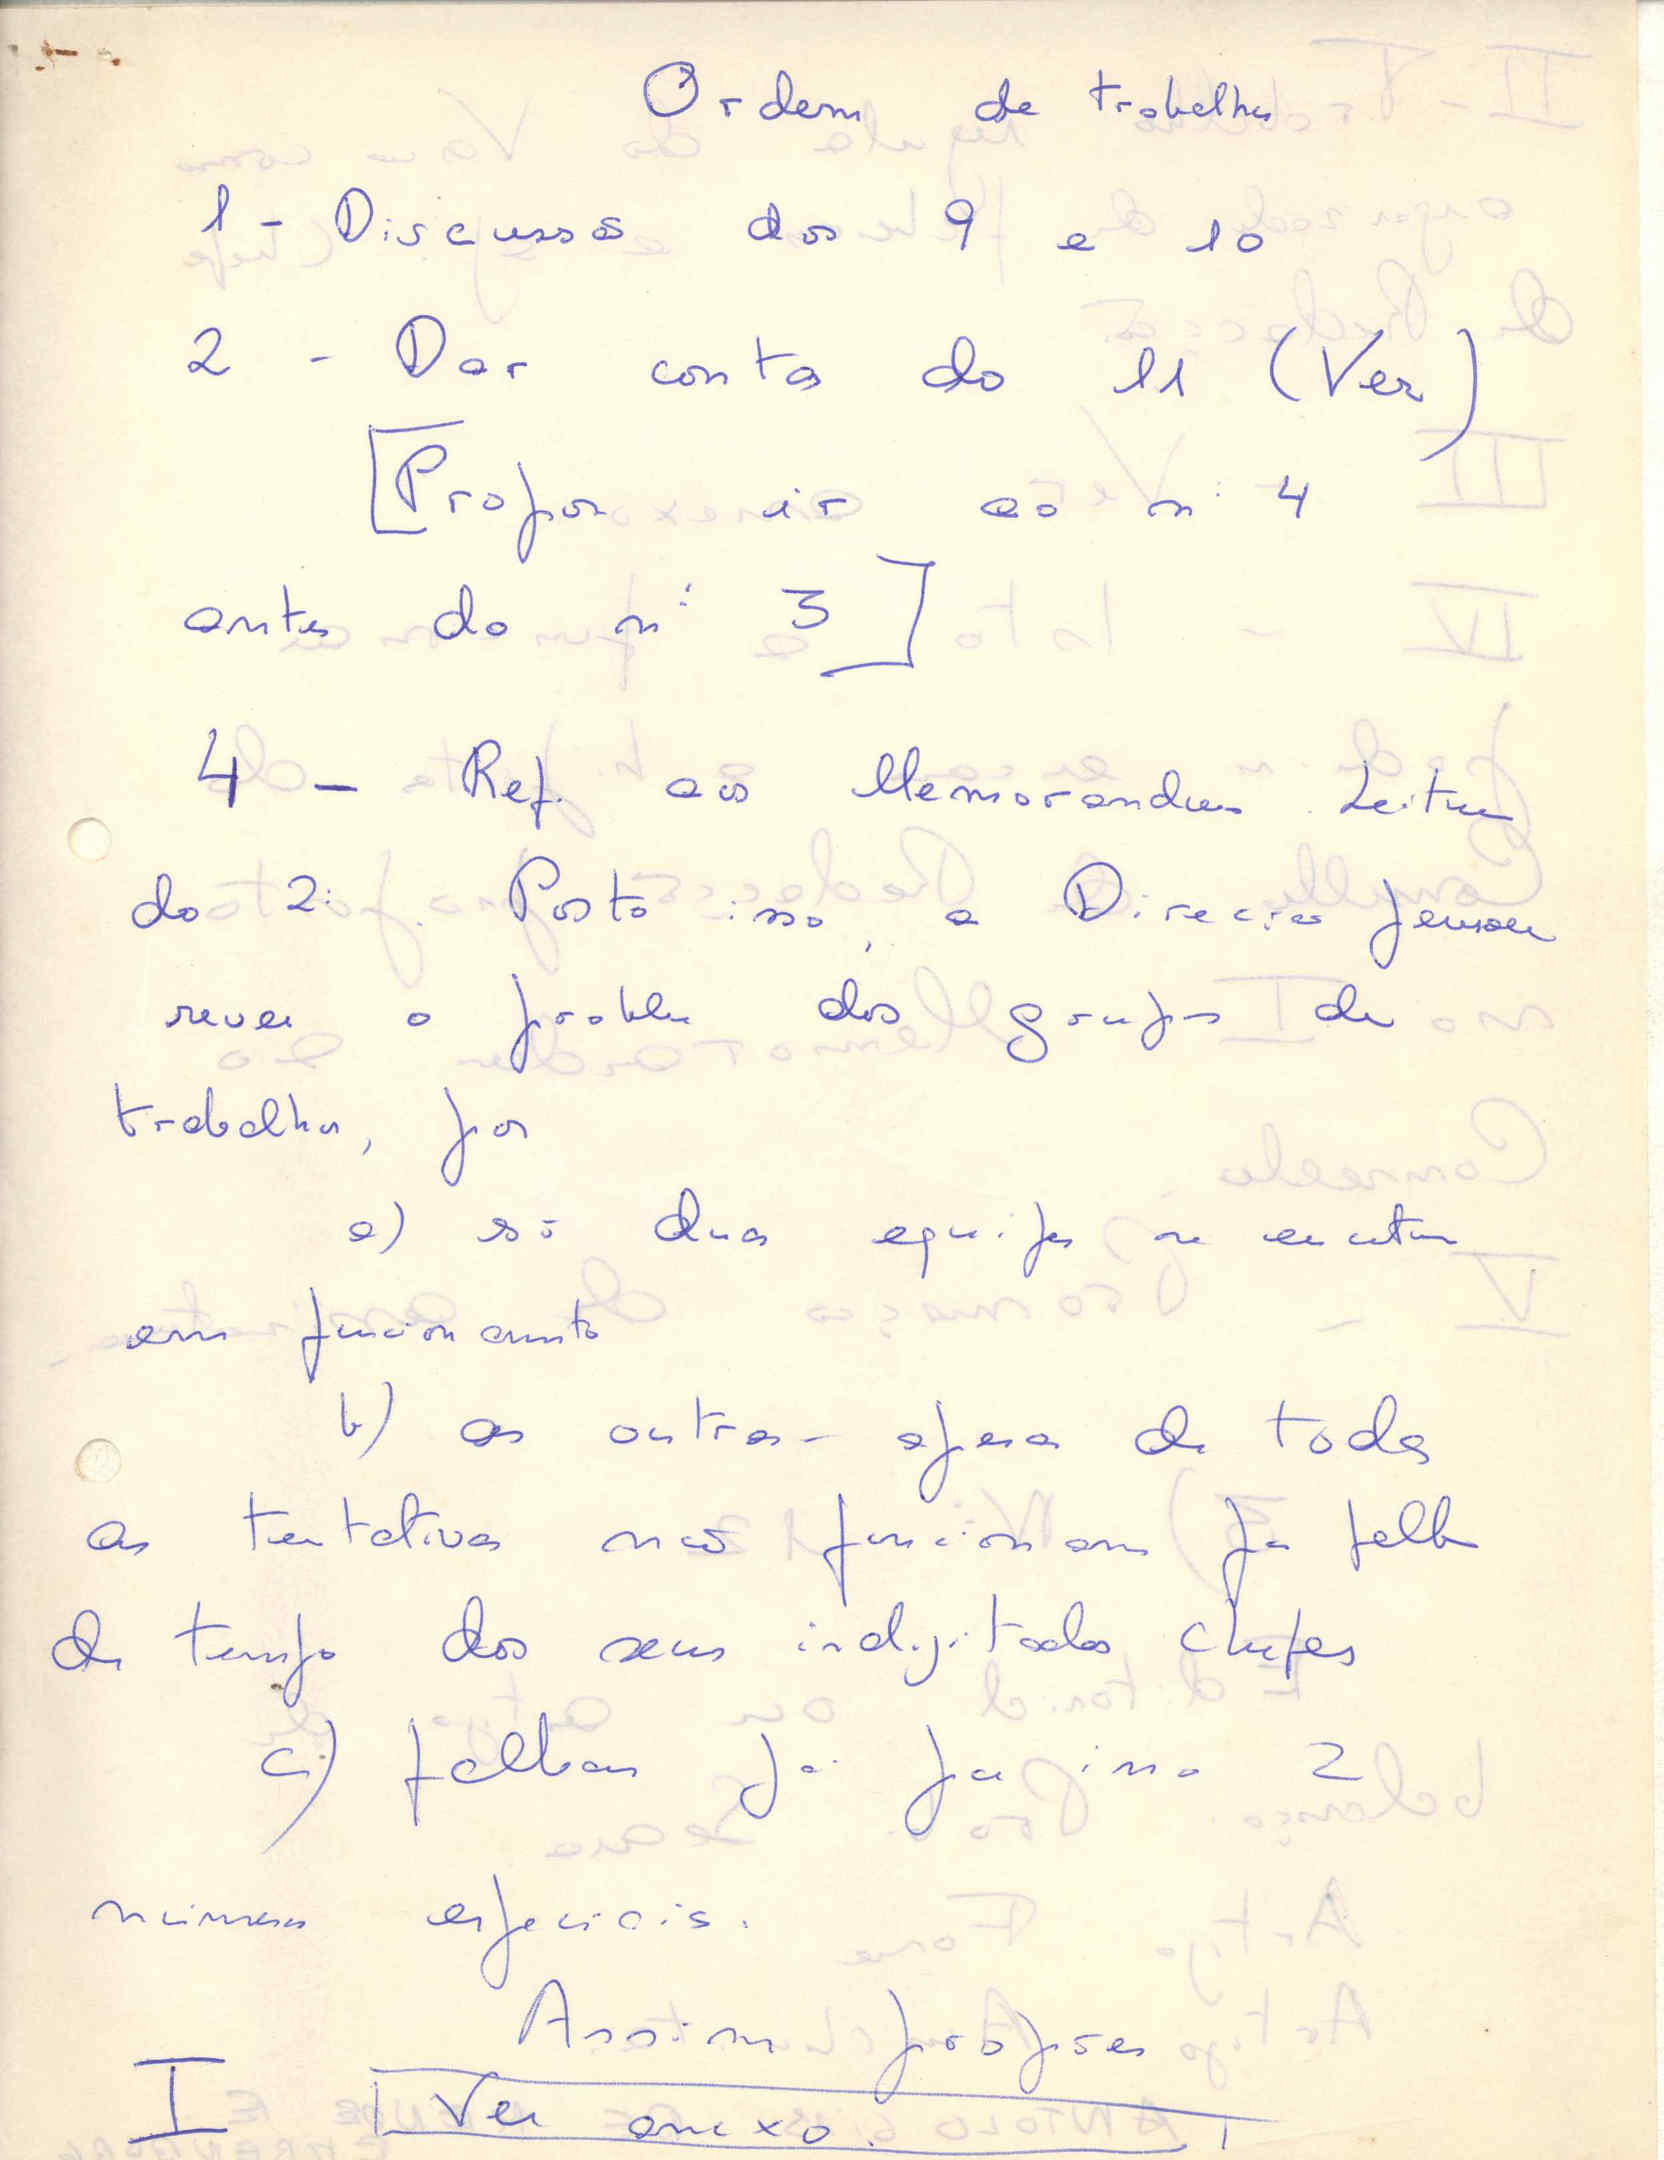 Ordem de trabalhos
1 - Discussão dos 9 e 10
2 - Dar conta do 11 (Ver)
[Propor ir ao nº 4
antes do nº 3]
4 - Ref. aos Memorandum. Leitura
do 2º. Posto isso, a Direcção pensou
rever o problema dos grupos de
trabalho, por
a) só duas equipas se encontram
em funcionamento
b) as outras - apesar de todas
as tentativas não funcionam por falta
de tempo dos seus indigitados chefes
c) faltam já por isso 2
números especiais.
Assim propões
I [Ver anexo.]